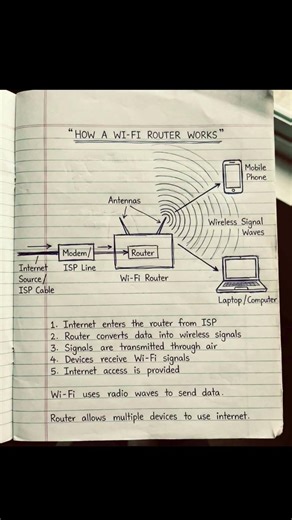 "HOW A WI-FI ROUTER WORKS"
Mobile
Phone
Antennas
Wireless Signal
Waves
Modem/
Router
Internet
Source/
ISP Cable
ISP Line
Wi-Fi Router
Laptop/Computer
1. Internet enters the router from ISP
2. Router converts data into wireless signals
3. Signals are transmitted through air
4. Devices receive Wi-Fi signals
5. Internet access is provided
Wi-Fi uses radio waves to send data.
Router allows multiple devices to use internet.